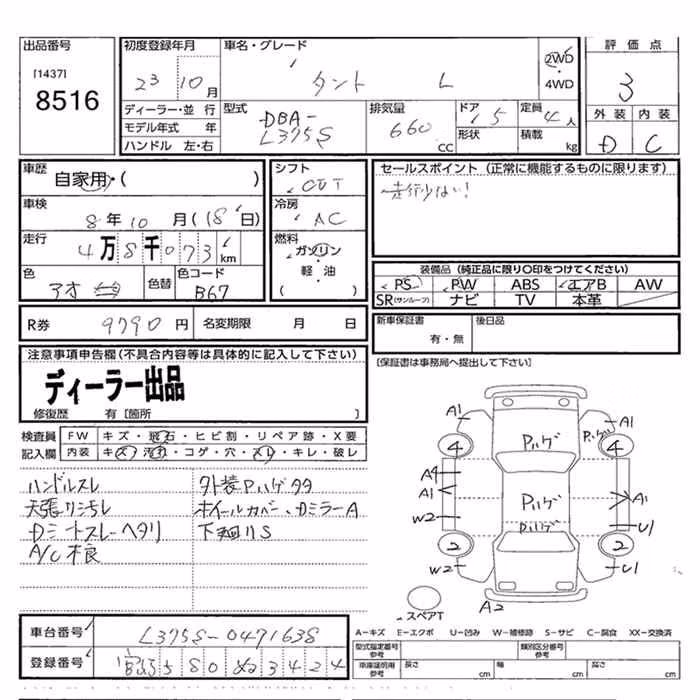 出品番号
[1437]
8516
初度登録年月
23 10月
車名・グレード
タント L
2WD
・
4WD
評価点
3
外装 内装
D C
ディーラー・並行
モデル年式 年
ハンドル 左・右
型式
DBA-
L375S
排気量
660
cc
ドア
5
形状
定員
4人
積載
kg
車歴
自家用・( )
車検
8年10月(18日)
走行
4万8千073km
色
アオ
色替
色コード
B67
シフト
COLT
冷房
AC
燃料
ガソリン
軽・油
( )
セールスポイント(正常に機能するものに限ります)
走行少ない!
装備品(純正品に限り○印をつけてください)
PS PW ABS エアB AW
SR(サンルーフ) ナビ TV 本革
R券 9790円 名変期限 月 日
新車保証書
有・無
後日品
[保証書は事務局へ提出して下さい]
注意事項申告欄(不具合内容等は具体的に記入して下さい)
ディーラー出品
修復歴 有[箇所 ]
検査員 FW キズ・飛石・ヒビ割・リペア跡・X要
記入欄 内装 キズ・汚れ・コゲ・穴・スレ・キレ・破レ
ハンドルスレ
天張リシミ汚レ
Dシートスレーヘタリ
A/C不良
外装Pハゲタタ
ホイールカバー、カミラーA
下廻りS
A1
A1
4
Pハゲ
Pハゲ
4
A9
A1
Pハゲ
A1
W2
Pハゲ
U1
2
2
W2
U1
スペアT
A2
車台番号 L375S-0471638
登録番号 580 ぬ 3424
A-キズ E-エクボ U-凹み W-補修跡 S-サビ C-腐食 XX-交換済
型式指定番号
参考
類別区分番号
参考
車庫証明用
参考
長さ cm
幅 cm
高さ cm